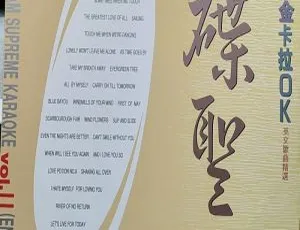 TOUCH ME WHEN WE'RE DANCING
THE GREATEST LOVE OF ALL SAILING
LONELY WON'T LEAVE ME ALONE AS TIME GOES BY
TAKE MY BREATH AWAY EVERGREEN TREE
ALL BY MYSELF CARRY ON TILL TOMORROW
BLUE BAYOU WINDMILLS OF YOUR MIND FIRST OF MAY
SCARBOROUGH FAIR WIND FLOWERS SLIP AND SLIDE
EVEN THE NIGHTS ARE BETTER CAN'T SMILE WITHOUT YOU
WHEN WILL I SEE YOU AGAIN AND I LOVE YOU SO
LOVE POTION NO.9 SHAKING ALL OVER
I HATE MYSELF FOR LOVING YOU
RIVER OF NO RETURN
LET'S LIVE FOR TODAY
碟聖
金卡拉OK
英文歌曲精選
SUPREME KARAOKE VOL.11 (E